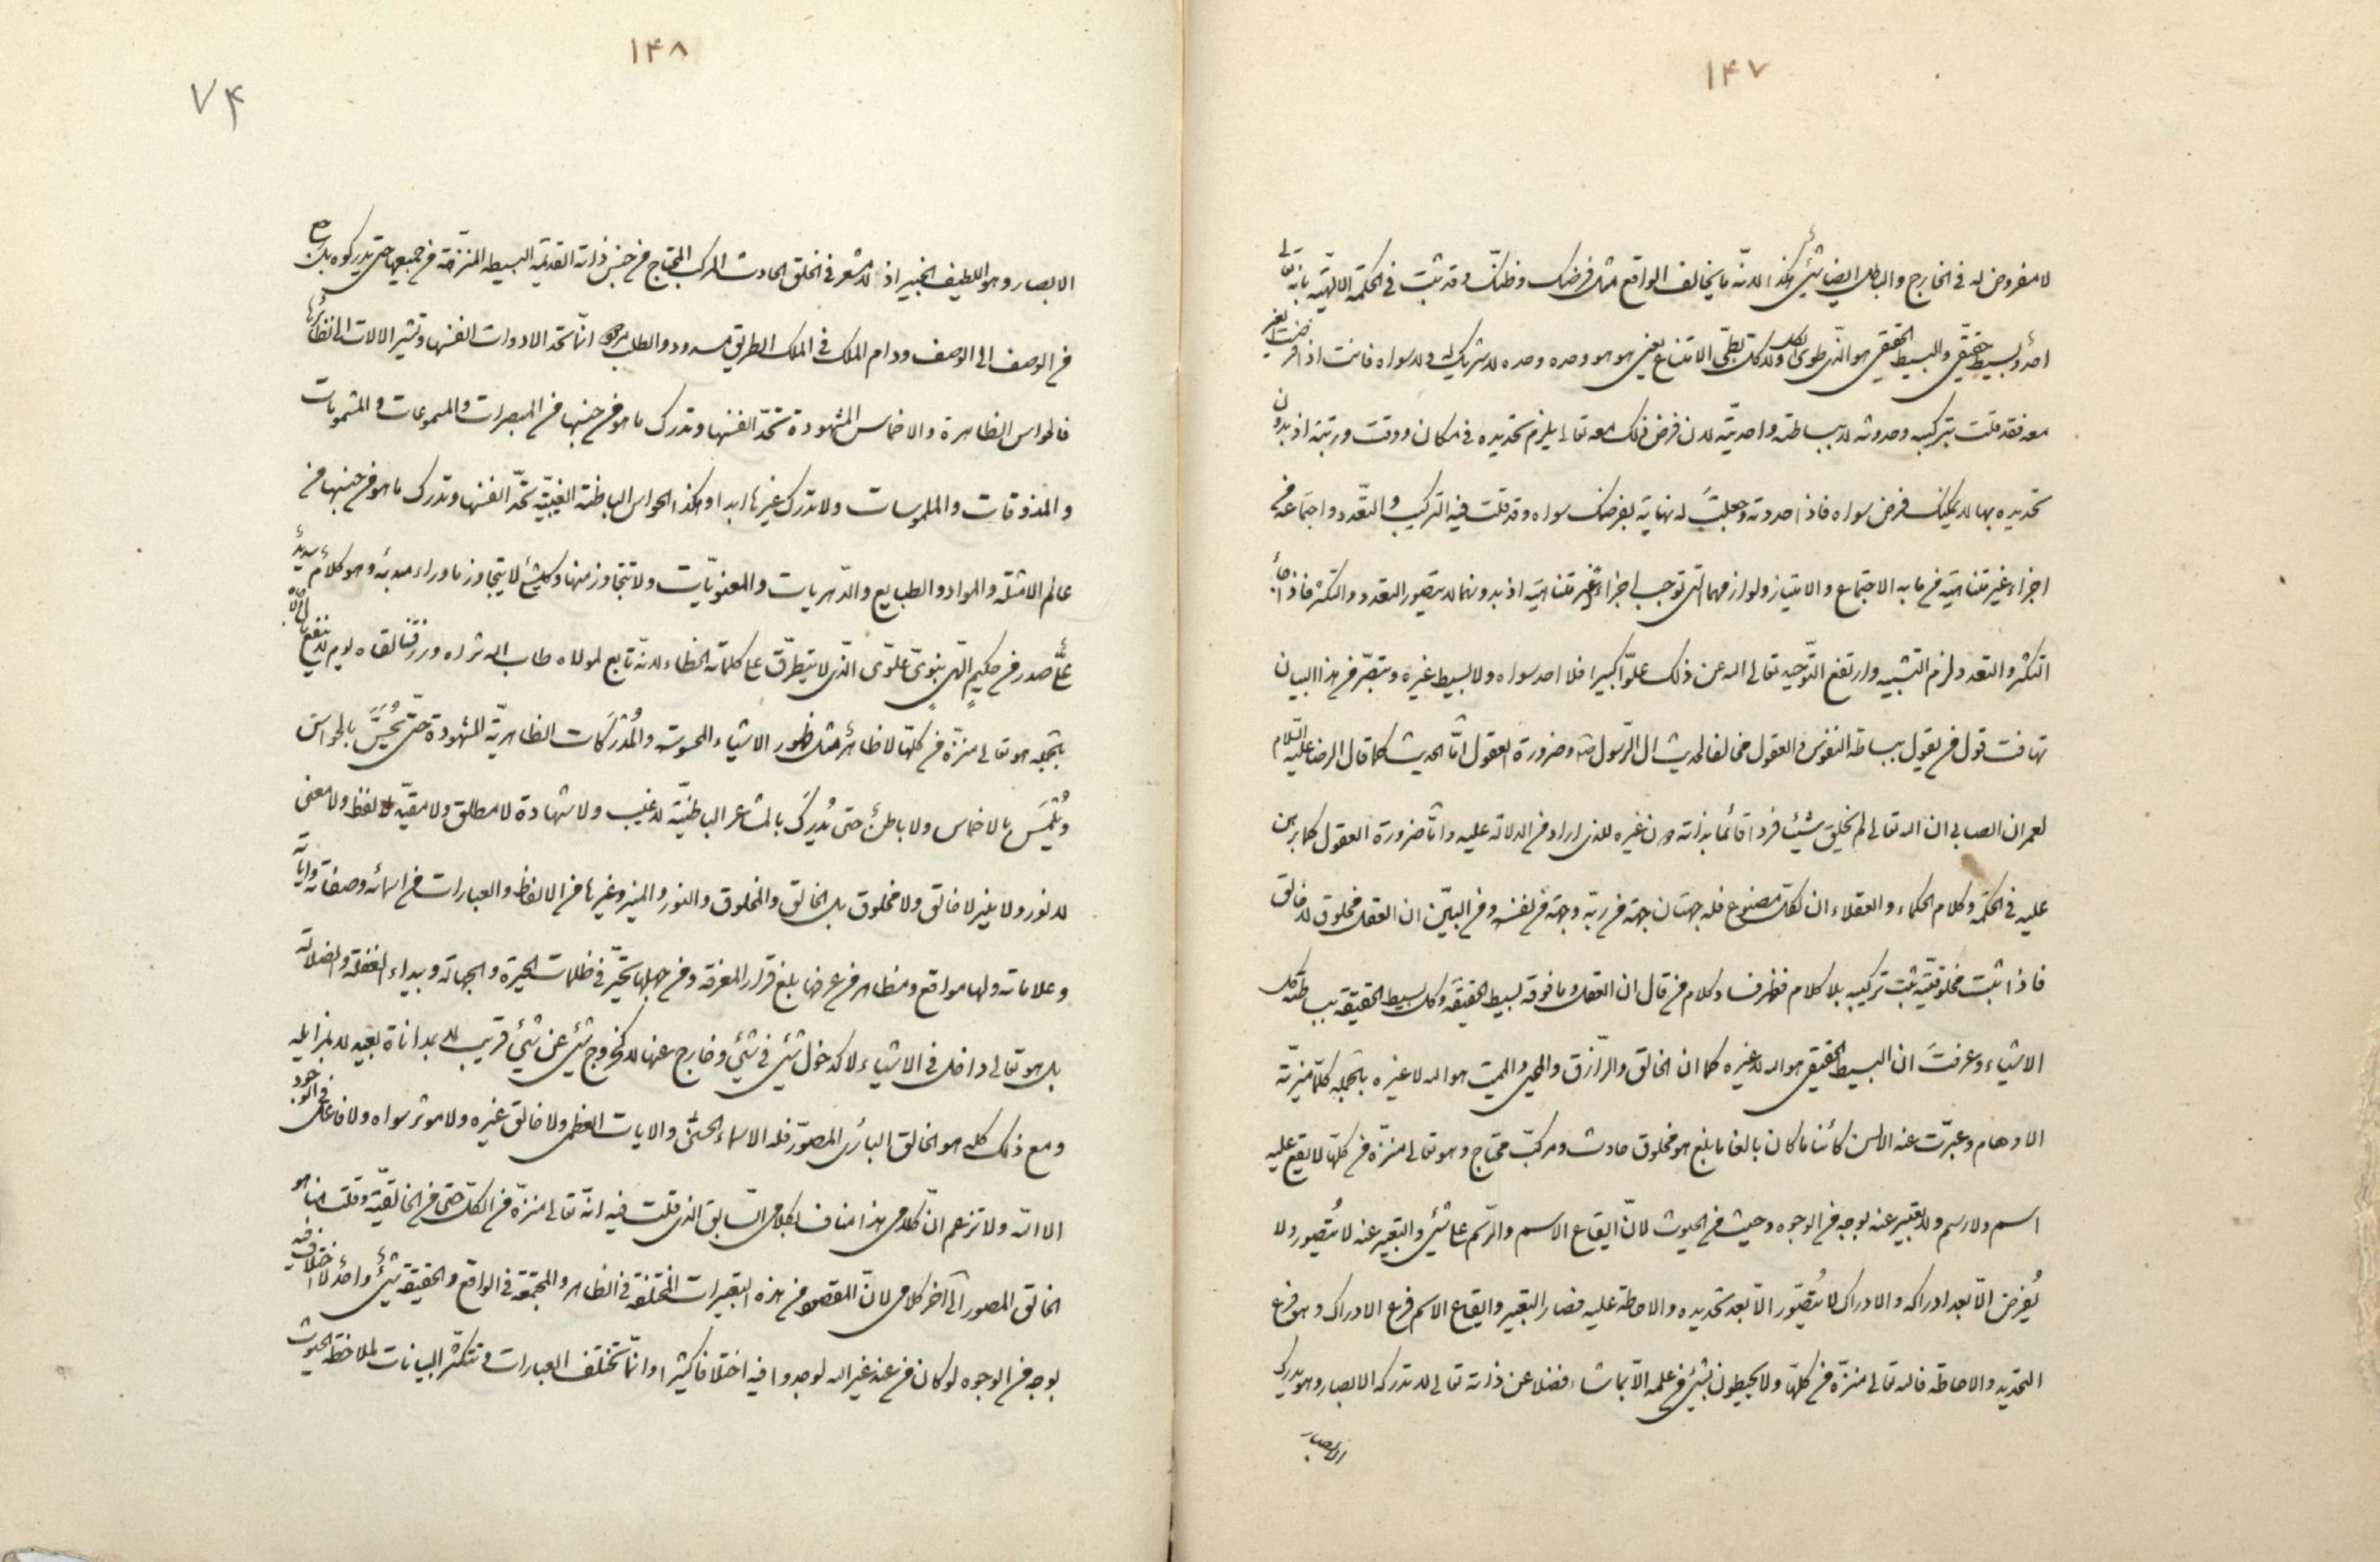 ١۴٧
لا مفروض له فى الخارج والباطل ايضا شئ هكذا لانه ما يخالف الواقع مثل فرضك وظنك وقد ثبت فى الحكمة الالهية بانه تعالى
احد وبسيط حقيقى والبسيط الحقيقى هو الذى طوى الكل ولا كل بطى الامتناع يعنى هو هو وحده وحده لا شريك له ولا سواه فانت اذا فرضت الغير
معه فقد قلت بتركيبه وحدوثه لا ببساطته واحديته لان فرض ذلك معه تعالى يلزم تحديده فى مكان ووقت ورتبة اذ بدون
تحديده بها لا يمكنك فرض سواه فاذا حددته وجعلت له نهاية بفرضك سواه وقد قلت فيه التركيب والتعدد واجتماعه من
اجزاء غير متناهية من ما به الاجتماع والامتياز ولوازمهما التى توجب اجزاء غير متناهية اذ بدونها لا يتصور التعدد والتكثر فاذا جاء
التكثر والتعدد لزم التشبيه وارتفع التوحيد تعالى الله عن ذلك علوا كبيرا فلا احد سواه ولا بسيط غيره وتبصر من هذا البيان
تهافت قول من يقول ببساطة النفوس والعقول مخالفا لحديث ال الرسول ص وضرورة العقول اما الحديث كما قال الرضا عليه السلام
لعمران الصابى ان الله تعالى لم يخلق شيئا فردا قائما بذاته دون غيره للذى اراد من الدلالة عليه واما ضرورة العقول كما برهن
عليه فى الحكمة وكلام الحكماء والعقلاء ان لكل مصنوع فله جهتان جهة من ربه وجهة من نفسه ومن البين ان العقل مخلوق لا خالق
فاذا ثبت مخلوقيته ثبت تركيبه بلا كلام فظهر فساد كلام من قال ان العقل وما فوقه بسيط الحقيقة وكل بسيط الحقيقة ببساطته كل
الاشياء وعرفت ان البسيط الحقيقى هو الله لا غيره كما ان الخالق والرازق والمحيى والمميت هو الله لا غيره بالجملة كلما ميزته
الاوهام وعبرت عنه الالسن كائنا ما كان بالغا ما بلغ هو مخلوق حادث ومركب محتاج وهو تعالى منزه من كلها لا يقع عليه
اسم ولا رسم ولا تعبير عنه بوجه من الوجوه وحيث من الحيوث لان ايقاع الاسم والرسم على شئ والتعبير عنه لا يتصور ولا
يفرض الا بعد ادراكه والادراك لا يتصور الا بعد تحديده والاحاطة عليه فصار التعبير وايقاع الاسم فرع الادراك وهو فرع
التحديد والاحاطة فالله تعالى منزه من كلها ولا يحيطون بشئ من علمه الا بما شاء فضلا عن ذاته تعالى لا تدركه الابصار وهو يدرك
الابصار
١۴٨
٧۴
الابصار وهو اللطيف الخبير اذ لا مشعر فى الخلق الحادث المركب المحتاج من جنس ذاته القديمة البسيطة المنزهة من جميعها حتى يدركوه بل رجع
من الوصف الى الوصف ودام الملك فى الملك الطريق مسدود والطلب مردود انما تحد الادوات انفسها وتشير الالات الى نظائرها
فالحواس الظاهرة والاخماس المشهودة تحد انفسها وتدرك ما هو من جنسها من المبصرات والمسموعات والمشمومات
والمذوقات والملموسات ولا تدرك غيرها ابدا وهكذا الحواس الباطنة الغيبية تحد انفسها وتدرك ما هو من جنسها من
عالم الامثلة والمواد والطبايع والدهريات والمعنويات ولا تتجاوز منها وكل شئ لا يتجاوز ما وراء مبدئه وهو كلام سديد
عما صدر من حكيم الهى بنبوى علوى الذى لا يتطرق على كلماته الخطاء لانه تابع لمولاه طاب الله ثراه ورزقنا لقاه يوم لا ينفع
بالجملة هو تعالى منزه من كلها لا ظاهر مثل ظهور الاشياء المحسوسة والمدركات الظاهرية المشهودة حتى يحس بالحواس
ويلمس بالاخماس ولا باطن حتى يدرك بالمشاعر الباطنية لا غيب ولا شهادة لا مطلق ولا مقيد لا لفظ ولا معنى
لا نور ولا منير لا خالق ولا مخلوق بل الخالق والمخلوق والنور والمنير وغيرها من الالفاظ والعبارات من اسمائه وصفاته واياته
وعلاماته ولها مواقع ومظاهر من عرفها بلغ قرار المعرفة ومن جهلها تحير فى ظلمات الحيرة والجهالة وبيداء الغفلة والضلالة
بل هو تعالى داخل فى الاشياء لا كدخول شئ فى شئ وخارج عنها لا كخروج شئ عن شئ قريب لا بمداناة بعيد لا بمزايلة
ومع ذلك كله هو الخالق البارئ المصور فله الاسماء الحسنى والايات العظمى ولا خالق غيره ولا موثر سواه ولا فاعل فى الوجود
الا الله ولا تزعم ان كلامى هذا مناف لكلامى السابق الذى قلت فيه انه تعالى منزه من الكل حتى من الخالقية وقلت هنا هو
الخالق المصور الى آخر كلامى لان المقصود من هذه التعبيرات المختلفة فى الظاهر والمجتمعة فى الواقع والحقيقة شئ واحد لا اختلاف فيه
بوجه من الوجوه لو كان من عند غير الله لوجدوا فيه اختلافا كثيرا وانما تختلف العبارات وتتكثر البيانات لملاحظة الحيوث